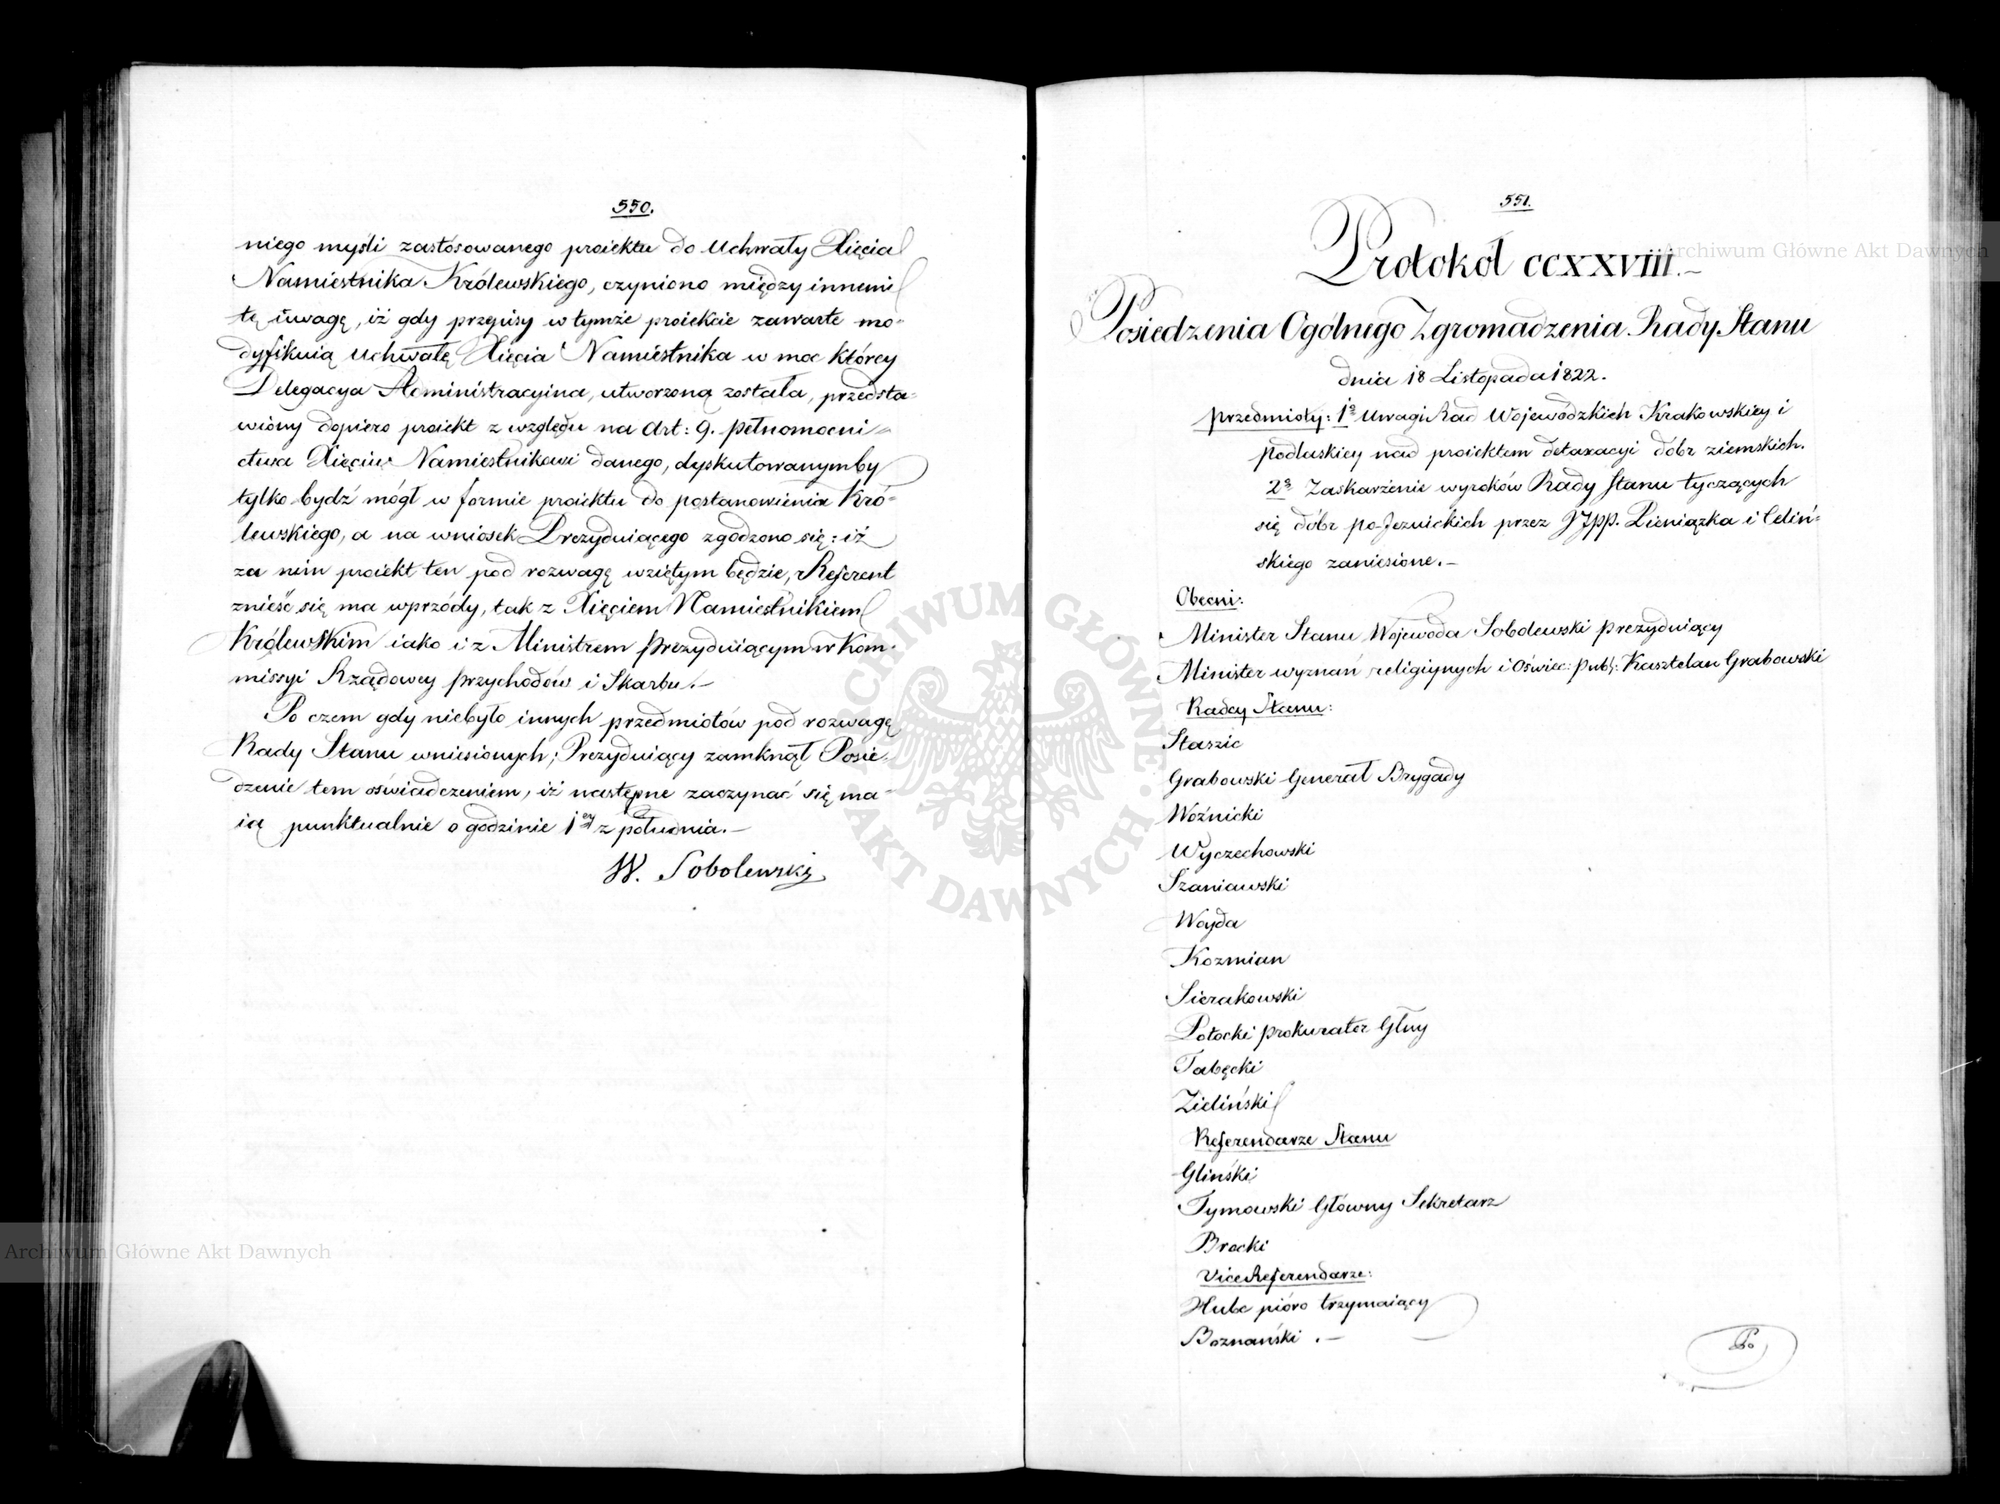 550.
niego myśli zastosowanego proiektu do Uchwały Xięcia
Namiestnika Królewskiego, czyniono między innemi
tę uwagę, iż gdy przepisy w tymże proiekcie zawarte mo-
dyfikuią Uchwałę Xięcia Namiestnika w moc którey
Delegacya Administracyina, utworzoną została, przedsta-
wiony dopiero proiekt z względu na Art: 9. pełnomocni-
ctwa Xięciu Namiestnikowi danego, dyskutowanymby
tylko bydź mógł w formie proiektu do postanowienia Kró-
lewskiego, a na wniosek Prezyduiącego zgodzono się: iż
za nim proiekt ten pod rozwagę wziętym będzie, Referent
znieść się ma wprzódy, tak z Xięciem Namiestnikiem
Królewskim iako i z Ministrem Prezyduiącym w Kom-
missyi Rządowey Przychodów i Skarbu.-
Po czem gdy niebyło innych przedmiotów pod rozwagę
Rady Stanu wniesionych; Prezyduiący zamknął Posie-
dzenie tem oświadczeniem, iż następne zaczynać się ma-
ią punktualnie o godzinie 1ey z południa.-
W. Sobolewski
551.
Protokół CCXXVIII.-
Posiedzenia Ogólnego Zgromadzenia Rady Stanu
dnia 18 Listopada 1822.
Przedmioty: 1o Uwagi Rad Wojewodzkich Krakowskiey i
Podlaskiey nad proiektem detaxacyi dóbr ziemskich.
2o Zaskarżenie wyroków Rady Stanu tyczących
się dóbr po-Jezuickich przez JJPP. Pieniążka i Celiń-
skiego zaniesione.-
Obecni:
Minister Stanu Wojewoda Sobolewski Prezyduiący
Minister wyznań religiynych i Oświec: Publ: Kasztelan Grabowski
Radcy Stanu:
Staszic
Grabowski Generał Brygady
Woźnicki
Wyczechowski
Szaniawski
Woyda
Kozmian
Sierakowski
Potocki Prokurator Głny
Tabęcki
Zieliński
Referendarze Stanu
Gliński
Tymowski Główny Sekretarz
Brocki
ViceReferendarze:
Hube pióro trzymaiący
Boznański.-
Po
Archiwum Główne Akt Dawnych
Archiwum Główne Akt Dawnych
ARCHIWUM GŁÓWNE AKT DAWNYCH